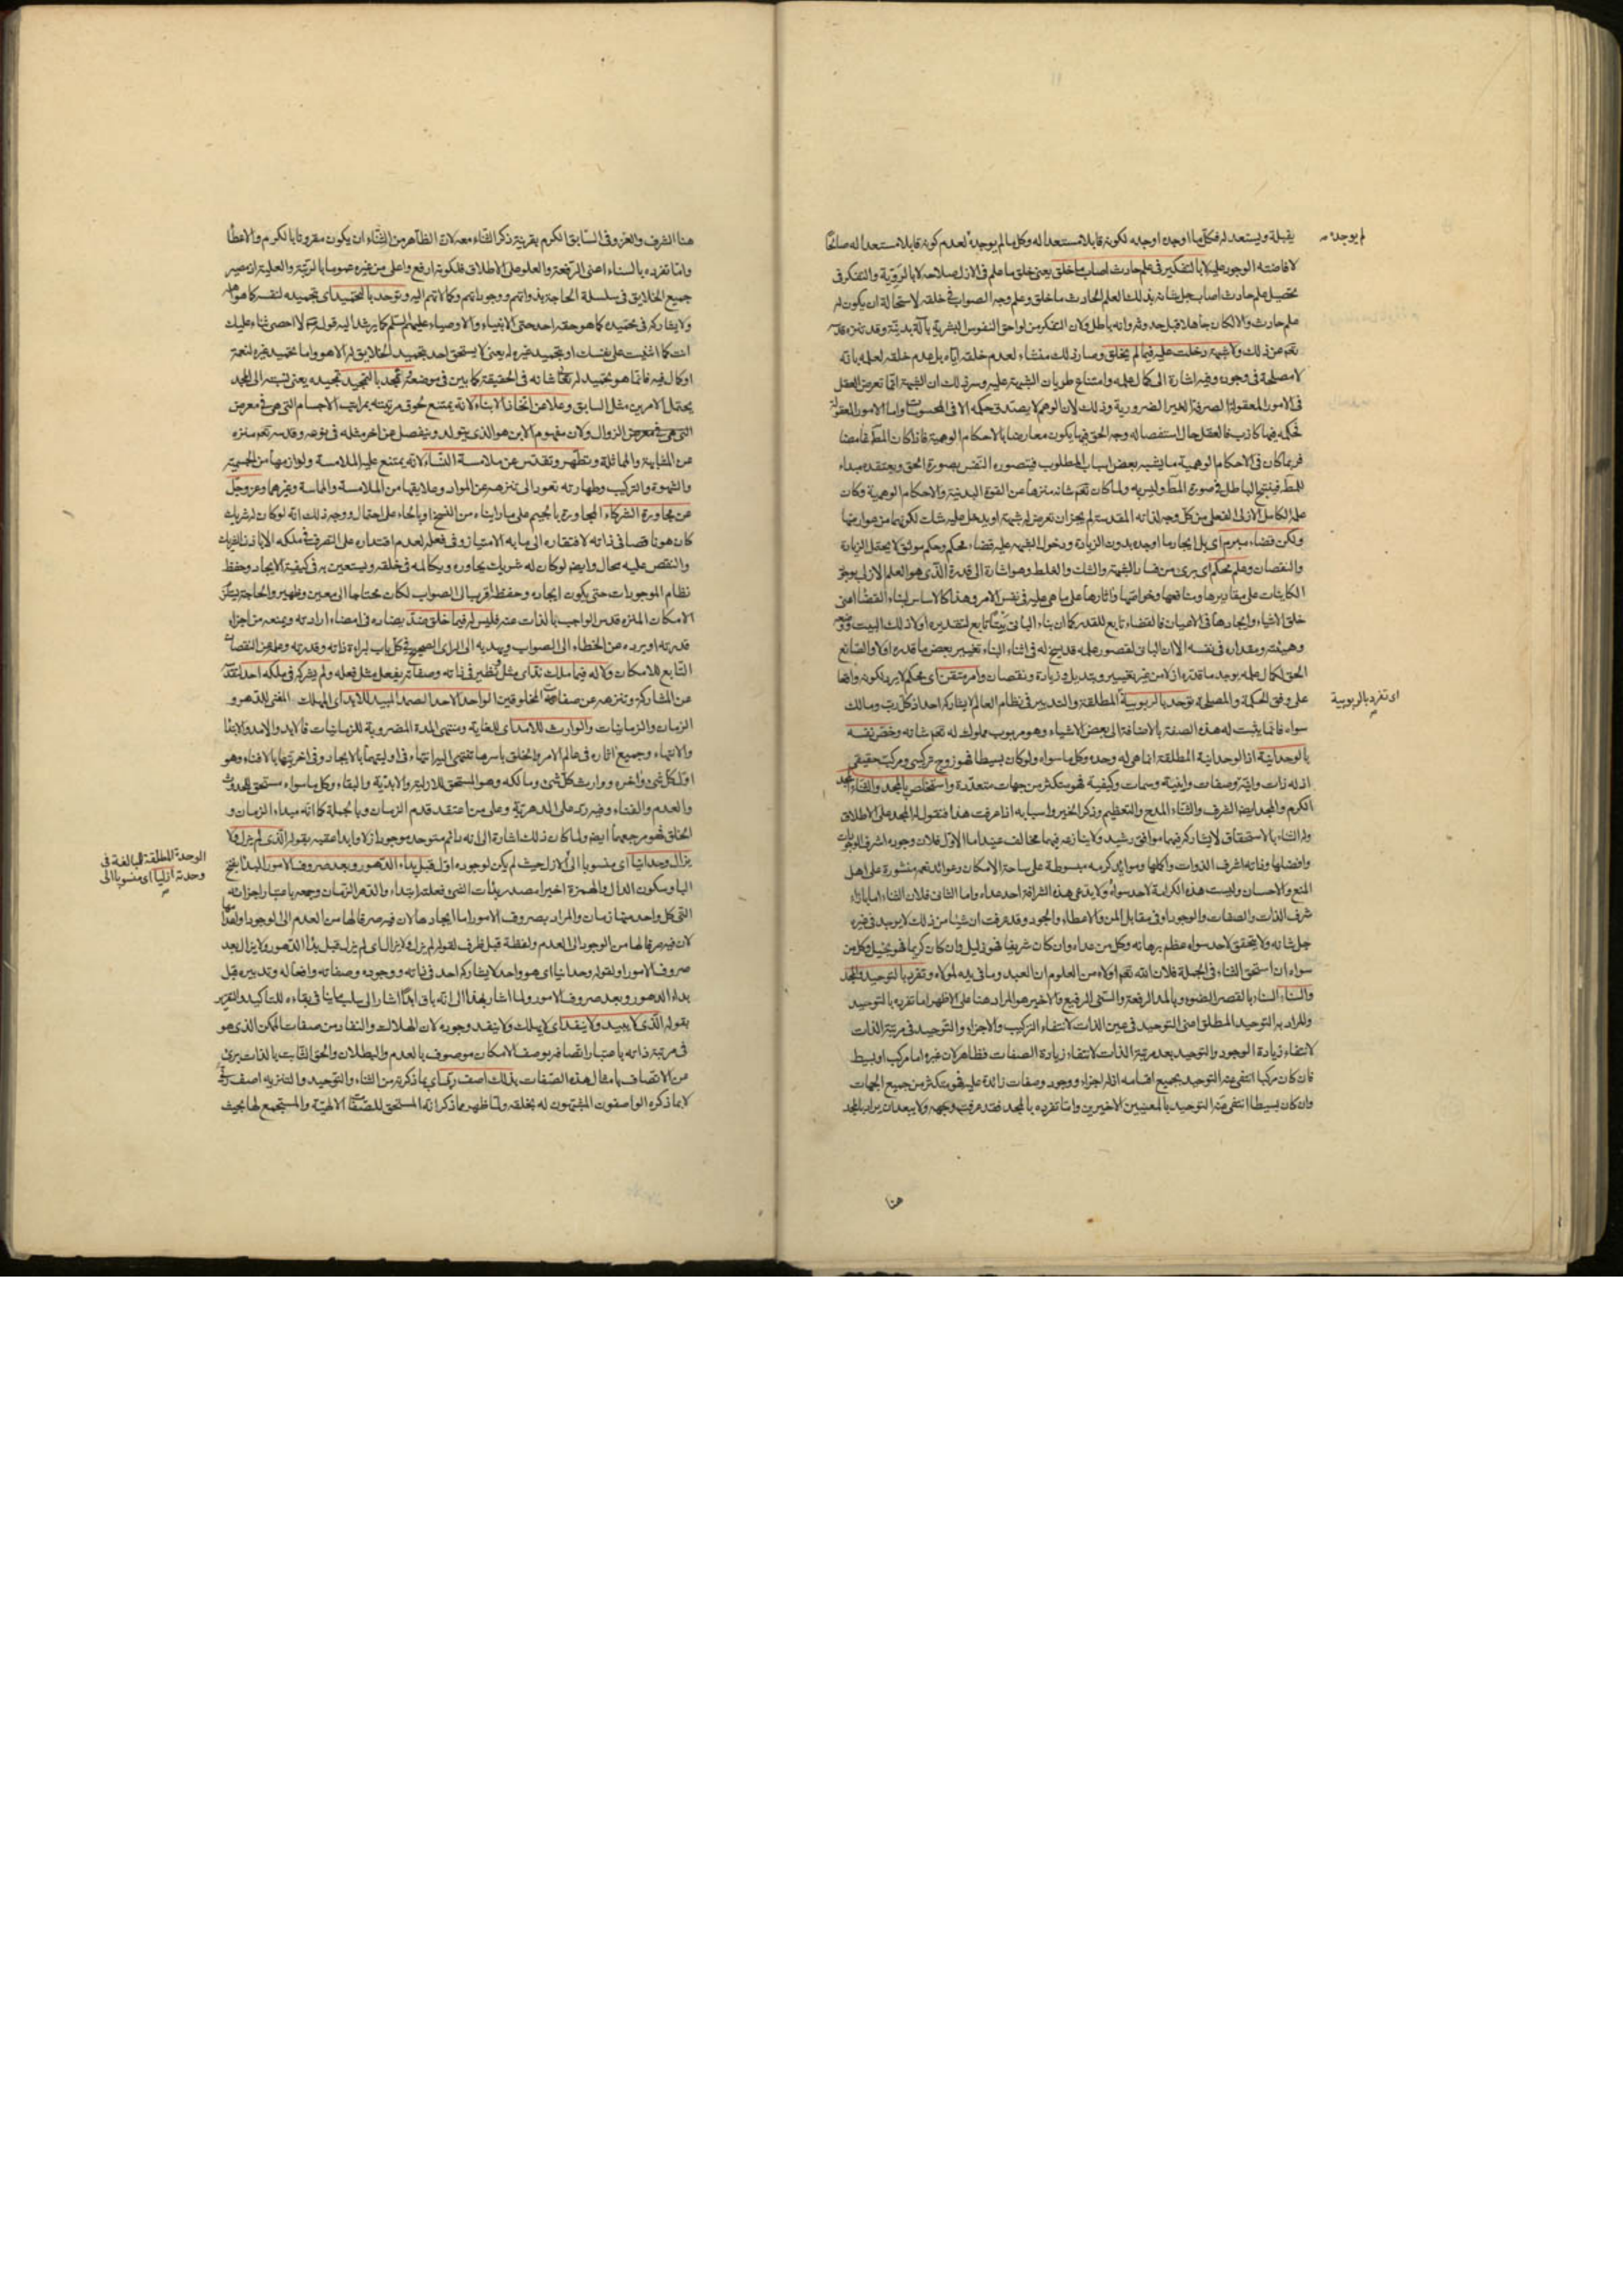 يقبله ويستعد له فكل ما اوجده اوجده لكونه قابلا مستعدا له وكل ما لم يوجده لعدم كونه قابلا مستعدا له صالحا
لم يوجده
لافاضته الوجود عليه لا بالتفكير في علم حادث اصاب ما خلق يعنى خلق ما علم في الازل صلاحه لا بالروية والتفكر في
تحصيل علم حادث اصاب جل شانه بذلك العلم الحادث ما خلق وعلم وجه الصواب في خلقه لاستحالة ان يكون له
علم حادث والا لكان جاهلا قبل حدوثه وانه باطل ولان التفكر من لواحق النفوس البشرية بآلة بدنية وقد تنزه قدسه
تعم عن ذلك ولا شبهة دخلت عليه فيما لم يخلق وصار ذلك منشاء لعدم خلقه اياه بل عدم خلقه لعلمه بانه
لا مصلحة في وجوده وفيه اشارة الى كمال علمه وامتناع طريان الشبهة عليه وسر ذلك ان الشبهة انما تعرض العقل
في الامور المعقولة الصرفة الغير الضرورية وذلك لان الوهم لا يصدق حكمه الا في المحسوسات واما الامور المعقولة
فحكمه فيها كاذب فالعقل حال استفصاله وجه الحق فيها يكون معارضا بالاحكام الوهمية فاذا كان المط غامضا
فربما كان في الاحكام الوهمية ما يشبه بعض اسباب المطلوب فيتصوره النفس بصورة الحق ويعتقده مبداء
للمط فينتج الباطل في صورة المط وليس به ولما كان تعم شانه منزها عن القوة البدنية والاحكام الوهمية وكان
علمه الكامل الازلى الفعلى من كل وجه لذاته المقدسة لم يجز ان تعرض له شبهة او يدخل عليه شك لكونهما من عوارضها
ولكن قضاء مبرم اى بل ايجاد ما اوجده بدون الزيادة ودخول الشبهه عليه قضاء محكم وحكم موثق لا يحتمل الزيادة
والنقصان وعلم محكم اى برى من فساد الشبهة والشك والغلط وهو اشارة الى قدرة الذى هو العلم الازلى بوجود
الكاينات على مقاديرها ومنافعها وخواصها واثارها على ما هي عليه في نفس الامر وهذا كالاساس لبناء القضا اعنى
خلق الاشياء وايجادها في الاعيان فالقضاء تابع للقدر كما ان بناء البانى بيتا تابع لتقديره اولا ذلك البيت
وهيئته ومقداره في نفسه الا ان البانى لقصور علمه قد يسنح له في اثناء البناء تغيير بعض ما قدره اولا والصانع
الحق لكمال علمه يوجد ما قدره ازلا من غير تغيير وتبديل وزيادة ونقصان وامر متقن اى محكم لا يريد لكونه واقعا
على وفق الحكمة والمصلحة توحد بالربوبية المطلقة والتدبير في نظام العالم لا يشاركه احد اذ كل رب ومالك
اى تفرد بالربوبية
سواه فانما يثبت له هذه الصفة بالاضافة الى بعض الاشياء وهو مربوب مملوك له تعم شانه وخص نفسه
بالوحدانية اذ الوحدانية المطلقة انما هي له وحده وكل ما سواه ولو كان بسيطا فهو زوج تركيبى ومركب حقيقى
اذ له ذات وانية وصفات واينية وسمات وكيفية فهو متكثر من جهات متعددة واستخلص بالمجد والثناء المجد
الكرم والمجد ايضا الشرف والثناء المدح والتعظيم وذكر الخير واسبابه اذا عرفت هذا فنقول له المجد على الاطلاق
وله الثناء بالاستحقاق لا يشاركه فيهما موافق رشيد ولا ينازعه فيهما مخالف عنيد اما الاول فلان وجوده اشرف الوجودات
وافضلها وذاته اشرف الذوات واكملها وموائد كرمه مبسوطة على ساحة الامكان وعوائد نعمه منشورة على اهل
المنع والاحسان وليست هذه الكرامة لاحد سواه ولا يدعى هذه الشرافة احد عداه واما الثانى فلان الثناء اما بازاء
شرف الذات والصفات والوجود او في مقابل المن والاعطاء والجود وقد عرفت ان شيئا من ذلك لا يوجد في غيره
جل شانه ولا يتحقق لاحد سواه عظم برهانه وكل من عداه وان كان شريفا فهو ذليل وان كان كريما فهو بخيل وكل من
سواه ان استحق الثناء في الجملة فلان الله تعم اولاه من العلوم ان العبد وما في يده لمولاه وتفرد بالتوحيد والمجد
والسناء السنا بالقصر الضوء وبالمد الرفعة والسنى الرفيع والاخير هو المراد هنا على الاظهر اما تفرده بالتوحيد
والمراد به التوحيد المطلق اعنى التوحيد في عين الذات لانتفاء التركيب والاجزاء والتوحيد في مرتبة الذات
لانتفاء زيادة الوجود والتوحيد بعد مرتبة الذات لانتفاء زيادة الصفات فظاهر لان غيره اما مركب او بسيط
فان كان مركبا انتفى عنه التوحيد بجميع اقسامه اذ له اجزاء ووجود وصفات زائدة عليه فهو متكثر من جميع الجهات
وان كان بسيطا انتفى عنه التوحيد بالمعنيين الاخيرين واما تفرده بالمجد فقد عرفت وجهه ولا يبعد ان يراد بالمجد
هنا
هنا الشرف والعز وفى السابق الكرم بقرينة ذكر الثناء معه لان الظاهر من الثناء ان يكون مقرونا بالكرم والاعطا
واما تفرده بالسناء اعنى الرفعة والعلو على الاطلاق فلكونه ارفع واعلى من غيره عموما بالرتبة والعلية اذ مصير
جميع الخلايق في سلسلة الحاجة بذواتهم ووجوداتهم وكمالاتهم اليه وتوحد بالتحميد اى بتحميده لنفسه كما هو اهله
ولا يشاركه في تحميده كما هو حقه احد حتى الانبياء والاوصياء عليهم السلم كما يرشد اليه قوله لا احصى ثناء عليك
انت كما اثنيت على نفسك او بتحميد غيره له يعنى لا يستحق احد بتحميد الخلايق له الا هو واما تحميد غيره لنعمة
او كمال فيه فانما هو تحميد له تعالى شانه في الحقيقة كما بين في موضعه تمجد بالتمجيد تمجيده يعنى نسبته الى المجد
يحتمل الامرين مثل السابق وعلا عن اتخاذ الابناء لانه يمتنع لحوق مرتبته بمراتب الاجسام التى هي في معرض
التى هي في معرض الزوال ولان مفهوم الابن هو الذى يتولد وينفصل عن اخر مثله في نوعه وقدسه تعم منزه
عن المشابهة والمماثلة وتطهر وتقدس عن ملامسة النساء لانه يمتنع عليه الملامسة ولوازمها من الجسمية
والشهوة والتركيب وطهارته تعود الى تنزهه عن المواد وعلايقها من الملامسة والمماسة وغيرهما وعز وجل
عن مجاورة الشركاء المجاورة بالجيم على ما رايناه من النسخ او بالحاء على احتمال ووجه ذلك انه لو كان له شريك
كان هو ناقصا في ذاته لافتقاره الى ما به الامتياز وفى فعله لعدم اقتداره على التصرف في ملكه الا باذن الشريك
والنقص عليه محال وايضا لو كان له شريك يجاوره ويكالمه في خلقه ويستعين به في كيفية الايجاد وحفظ
نظام الموجودات حتى يكون ايجاده وحفظه اقرب الى الصواب لكان محتاجا الى معين وظهير والحاجة
الامكان المنزه قدس الواجب بالذات عنه فليس له فيما خلق ضد يضاده في امضاء ارادته ويمنعه من اجراء
قدرته او يرده عن الخطاء الى الصواب ويهديه الى الراى الصحيح في كل باب لبراءة ذاته وقدرته وعلمه عن النقصان
التابع للامكان ولا له فيما ملك ند اى مثل ونظير في ذاته وصفاته يفعل مثل فعله ولم يشركه في ملكه احد لتقدسه
عن المشاركة وتنزهه عن صفات المخلوقين الواحد الاحد الصمد المبيد للابد اى المهلك المفنى للدهر و
الزمان والزمانيات والوارث للامد اى للغاية ومنتهى المدة المضروبة للزمانيات فالابد والامد والابتدا
والانتهاء وجميع اثاره في عالم الامر والخلق باسرها تنتهى اليه انتهاء في اوليتها بالايجاد وفى اخريتها بالافناء وهو
اول كل شئ واخره ووارث كل شئ ومالكه وهو المستحق للازلية والابدية والبقاء وكل ما سواه مستحق للحدوث
والعدم والفناء وفيه رد على الدهرية وعلى من اعتقد قدم الزمان وبالجملة كما انه مبداء الزمان و
الخلق فهو مرجعهما ايضا ولما كان ذلك اشارة الى انه دائم متوحد موجود ازلا وابدا عقبه بقوله الذى لم يزل ولا
يزال وحدانيا اى منسوبا الى الازل حيث لم يكن لوجوده اول قبل بداء الدهور وبعد صروف الامور البدأ بفتح
الوحدة المطلقة للمبالغة في
وحدته ازليا اى منسوبا الى
الباء وسكون الدال والهمزة اخيرا مصدر بدأت الشئ فعلته ابتداء والدهر الزمان وجمعه باعتبار اجزائه
التى كل واحد منها زمان والمراد بصروف الامور اما ايجادها لان فيه صرفا لها من العدم الى الوجود او اعدامها
لان فيه صرفا لها من الوجود الى العدم ولفظة قبل ظرف لقوله لم يزل ولا يزال اى لم يزل قبل بدأ الدهور ولا يزال بعد
صروف الامور او لقوله وحدانيا اى هو واحد لا يشاركه احد في ذاته ووجوده وصفاته وافعاله وتدبيره قبل
بداء الدهور وبعد صروف الامور ولما اشار بهذا الى انه باق ابدا اشار الى سلب ما ينافى بقاءه للتاكيد والتقرير
بقوله الذى لا يبيد ولا ينفد اى لا يهلك ولا ينفد وجوده لان الهلاك والنفاد من صفات الممكن الذى هو
في مرتبة ذاته باعتبار اتصافه بوصف الامكان موصوف بالعدم والبطلان والحق الثابت بالذات برئ
من الاتصاف بامثال هذه الصفات بذلك اصف ربى اى بما ذكرته من الثناء والتوحيد والتنزيه اصف ربى
لا بما ذكره الواصفون المشبهون له بخلقه ولما ظهر مما ذكر انه المستحق للصفات الالهية والمستجمع لها بحيث